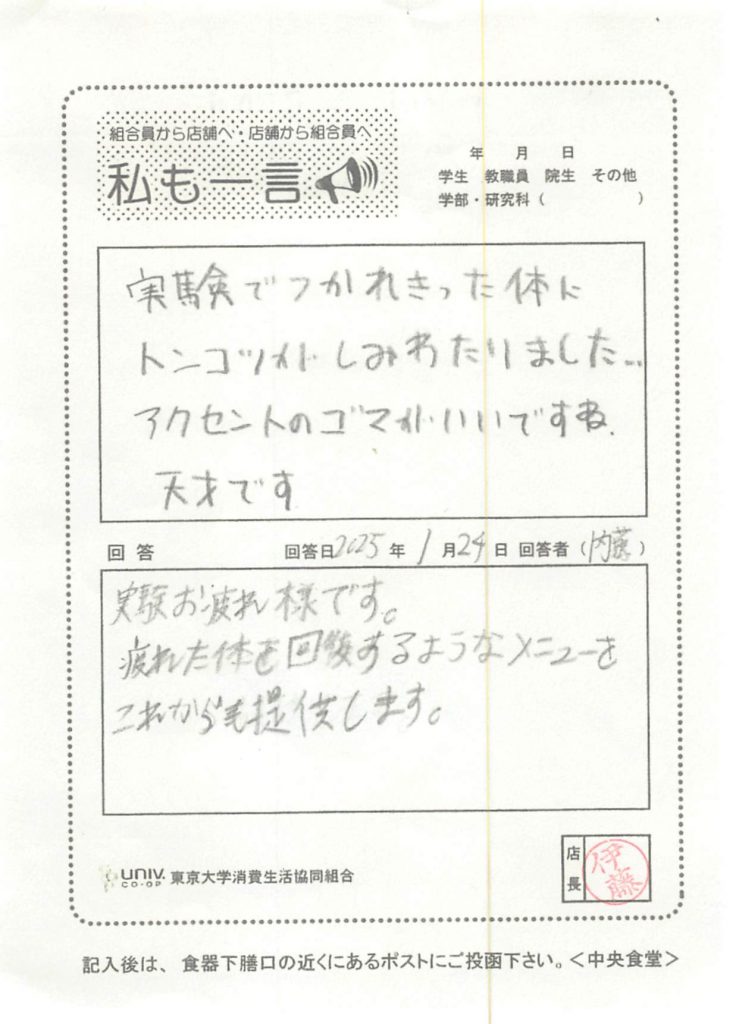 組合員から店舗へ・店舗から組合員へ
私も一言
年 月 日
学生 教職員 院生 その他
学部・研究科（ ）
実験でつかれきった体に
トンコツがしみわたりました...
アクセントのゴマがいいですね.
天才です
回答 回答日2025年1月24日 回答者（内藤）
実験お疲れ様です。
疲れた体を回復するようなメニューを
これからも提供します。
UNIV. CO-OP 東京大学消費生活協同組合
店長 伊藤
記入後は、食器下膳口の近くにあるポストにご投函下さい。＜中央食堂＞